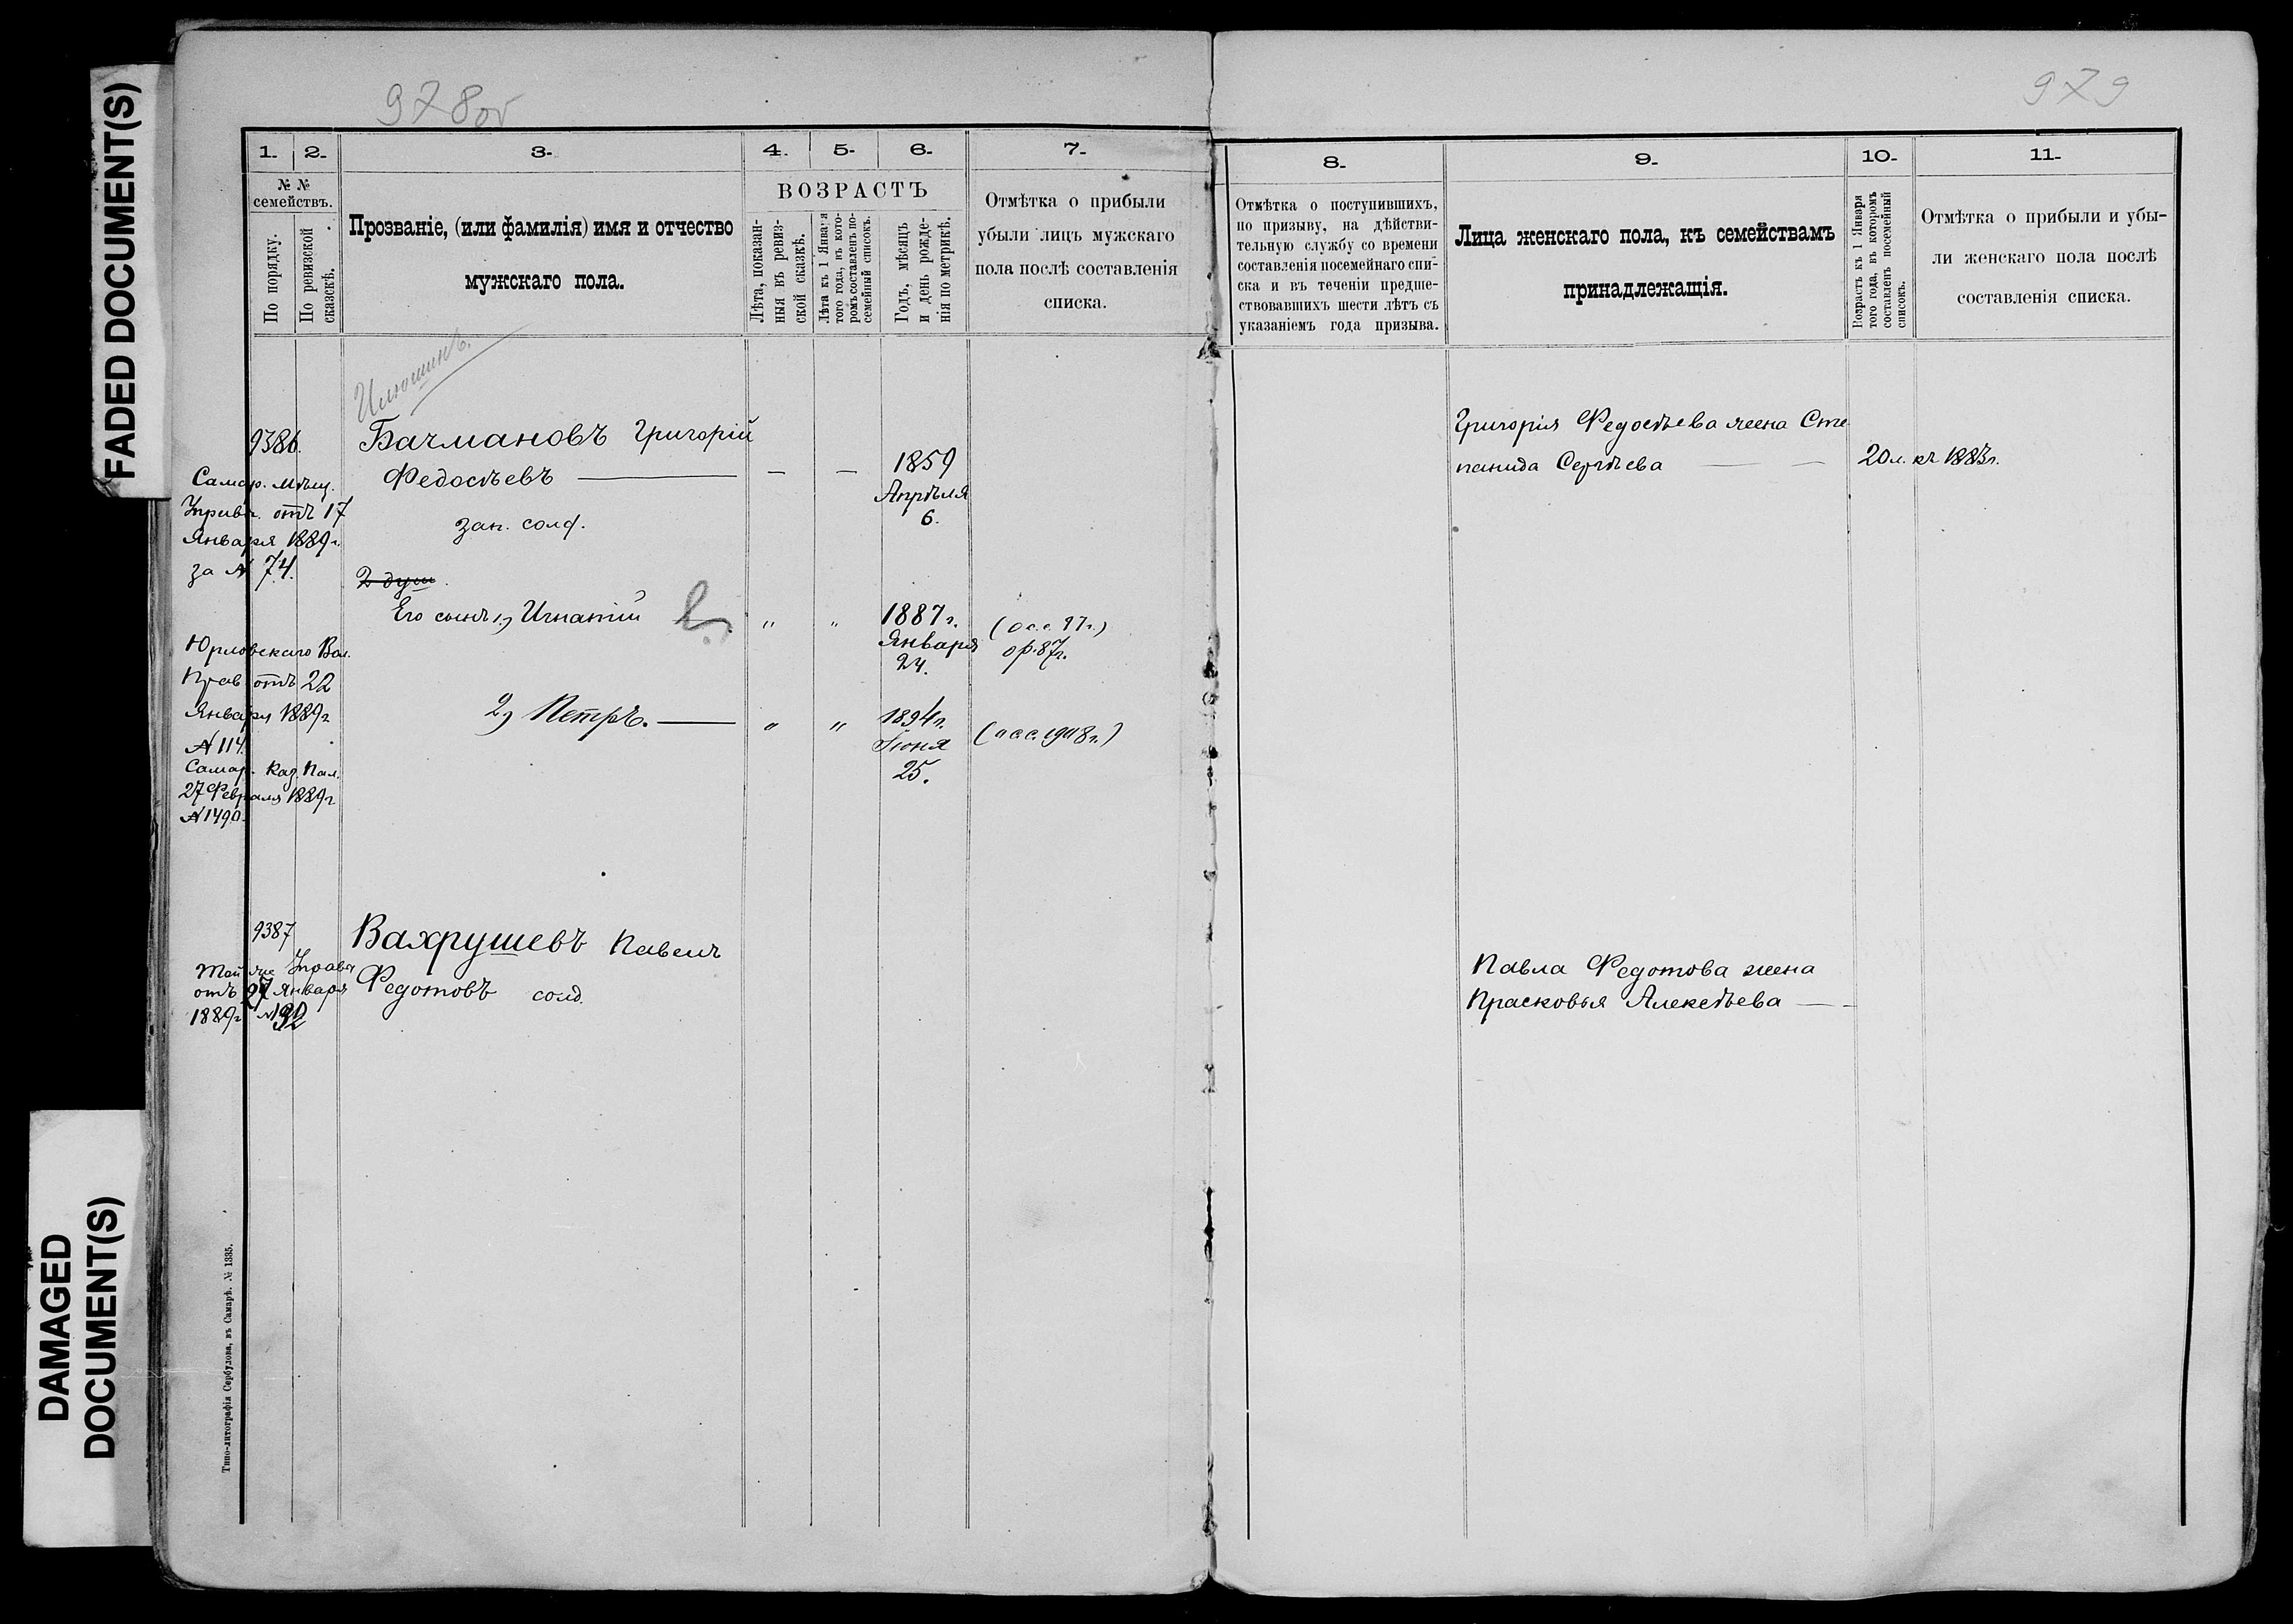 FADED DOCUMENT(S)
DAMAGED
DOCUMENT(S)
978об
1.
2.
3.
4.
5.
6.
7.
№ №
семействъ.
По порядку.
По ревизской
сказкѣ.
Прозваніе, (или фамилія) имя и отчество
мужскаго пола.
ВОЗРАСТЪ
Лѣта, показан-
ныя въ ревиз-
ской сказкѣ.
Лѣта къ 1 Января
того года, въ кото-
ромъ составленъ по-
семейный списокъ.
Годъ, мѣсяцъ
и день рожде-
нія по метрикѣ.
Отмѣтка о прибыли
убыли лицъ мужскаго
пола послѣ составленія
списка.
Илюшинъ.
9386.
Бачмановъ Григорій
Федосѣевъ — — —
1859
Апрѣля
6.
зап. солд.
Самар. Мѣщ.
Управ. отъ 17
Января 1889 г.
за № 74.
2 душ.
Его сынъ 1, Игнатій
" "
1887 г.
Января
24.
Юрловскаго Вол.
Прав. отъ 22
Января 1889 г
№ 114.
Самар. Каз. Пал.
27 Февраля 1889 г
№ 1490.
2, Петръ. —
" "
1894 г.
Іюня
25.
9387
Вахрушевъ Павелъ
Федотовъ солд.
Той же Управ
отъ 27 Января
1889 г
Типо-литографія Сербулова, въ Самарѣ. № 1335.
979
8.
9.
10.
11.
Отмѣтка о поступившихъ,
по призыву, на дѣйстви-
тельную службу со времени
составленія посемейнаго спи-
ска и въ теченіи предше-
ствовавшихъ шести лѣтъ съ
указаніемъ года призыва.
Лица женскаго пола, къ семействамъ
принадлежащія.
Возрастъ къ 1 Января
того года, въ которомъ
составленъ посемейный
списокъ.
Отмѣтка о прибыли и убы-
ли женскаго пола послѣ
составленія списка.
Григорія Федосѣева жена Сте
панида Сергѣева — —
20 л. къ 1883 г.
Павла Федотова жена
Прасковья Алексѣева —